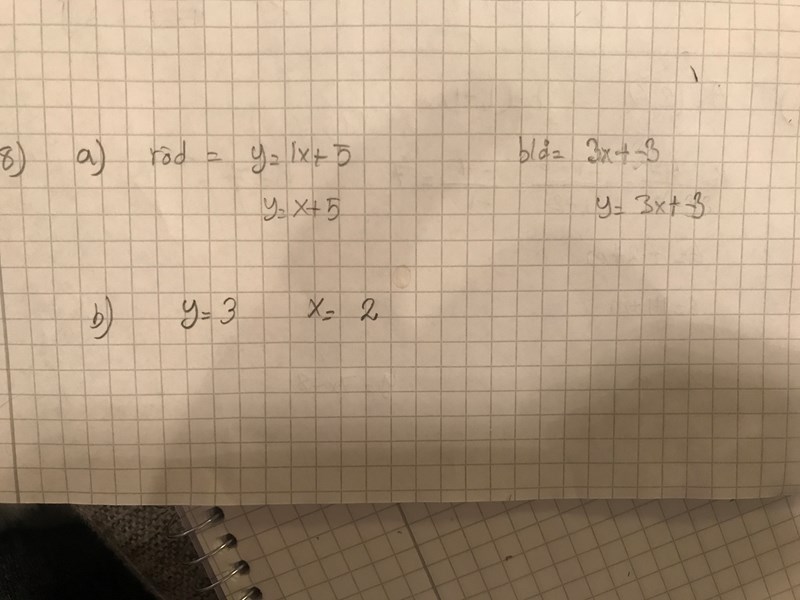 8) a) röd = y = 1x + 5 blå = 3x + -3
y = x + 5 y = 3x + -3
b) y = 3 x = 2